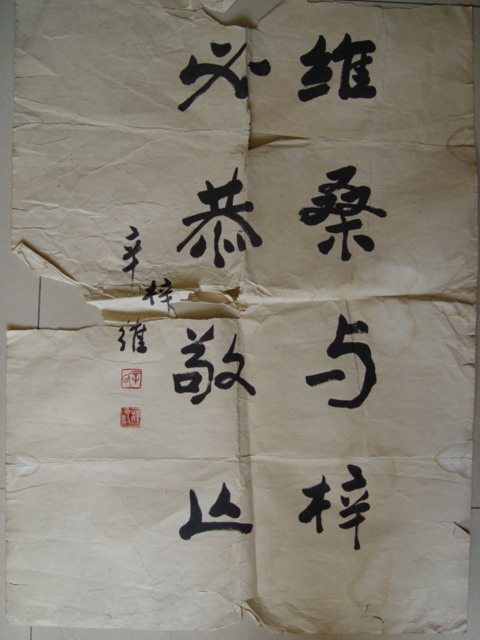 维桑与梓
必恭敬止
辛梓維